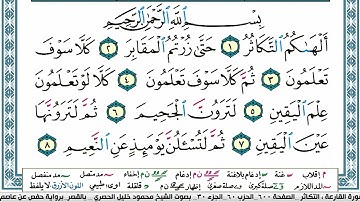 بِسْمِ اللَّهِ الرَّحْمَٰنِ الرَّحِيمِ
أَلْهَاكُمُ التَّكَاثُرُ ١ حَتَّىٰ زُرْتُمُ الْمَقَابِرَ ٢ كَلَّا سَوْفَ
تَعْلَمُونَ ٣ ثُمَّ كَلَّا سَوْفَ تَعْلَمُونَ ٤ كَلَّا لَوْ تَعْلَمُونَ
عِلْمَ الْيَقِينِ ٥ لَتَرَوُنَّ الْجَحِيمَ ٦ ثُمَّ لَتَرَوُنَّهَا
عَيْنَ الْيَقِينِ ٧ ثُمَّ لَتُسْأَلُنَّ يَوْمَئِذٍ عَنِ النَّعِيمِ ٨
سورة القارعة . التكاثر . الصفحة ٦٠٠ الحزب ٦٠ الجزء ٣٠ . بصوت الشيخ محمود خليل الحصري . بالقصر برواية حفص عن عاصم